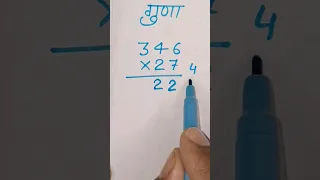 गुणा
4
346
×27 4
22